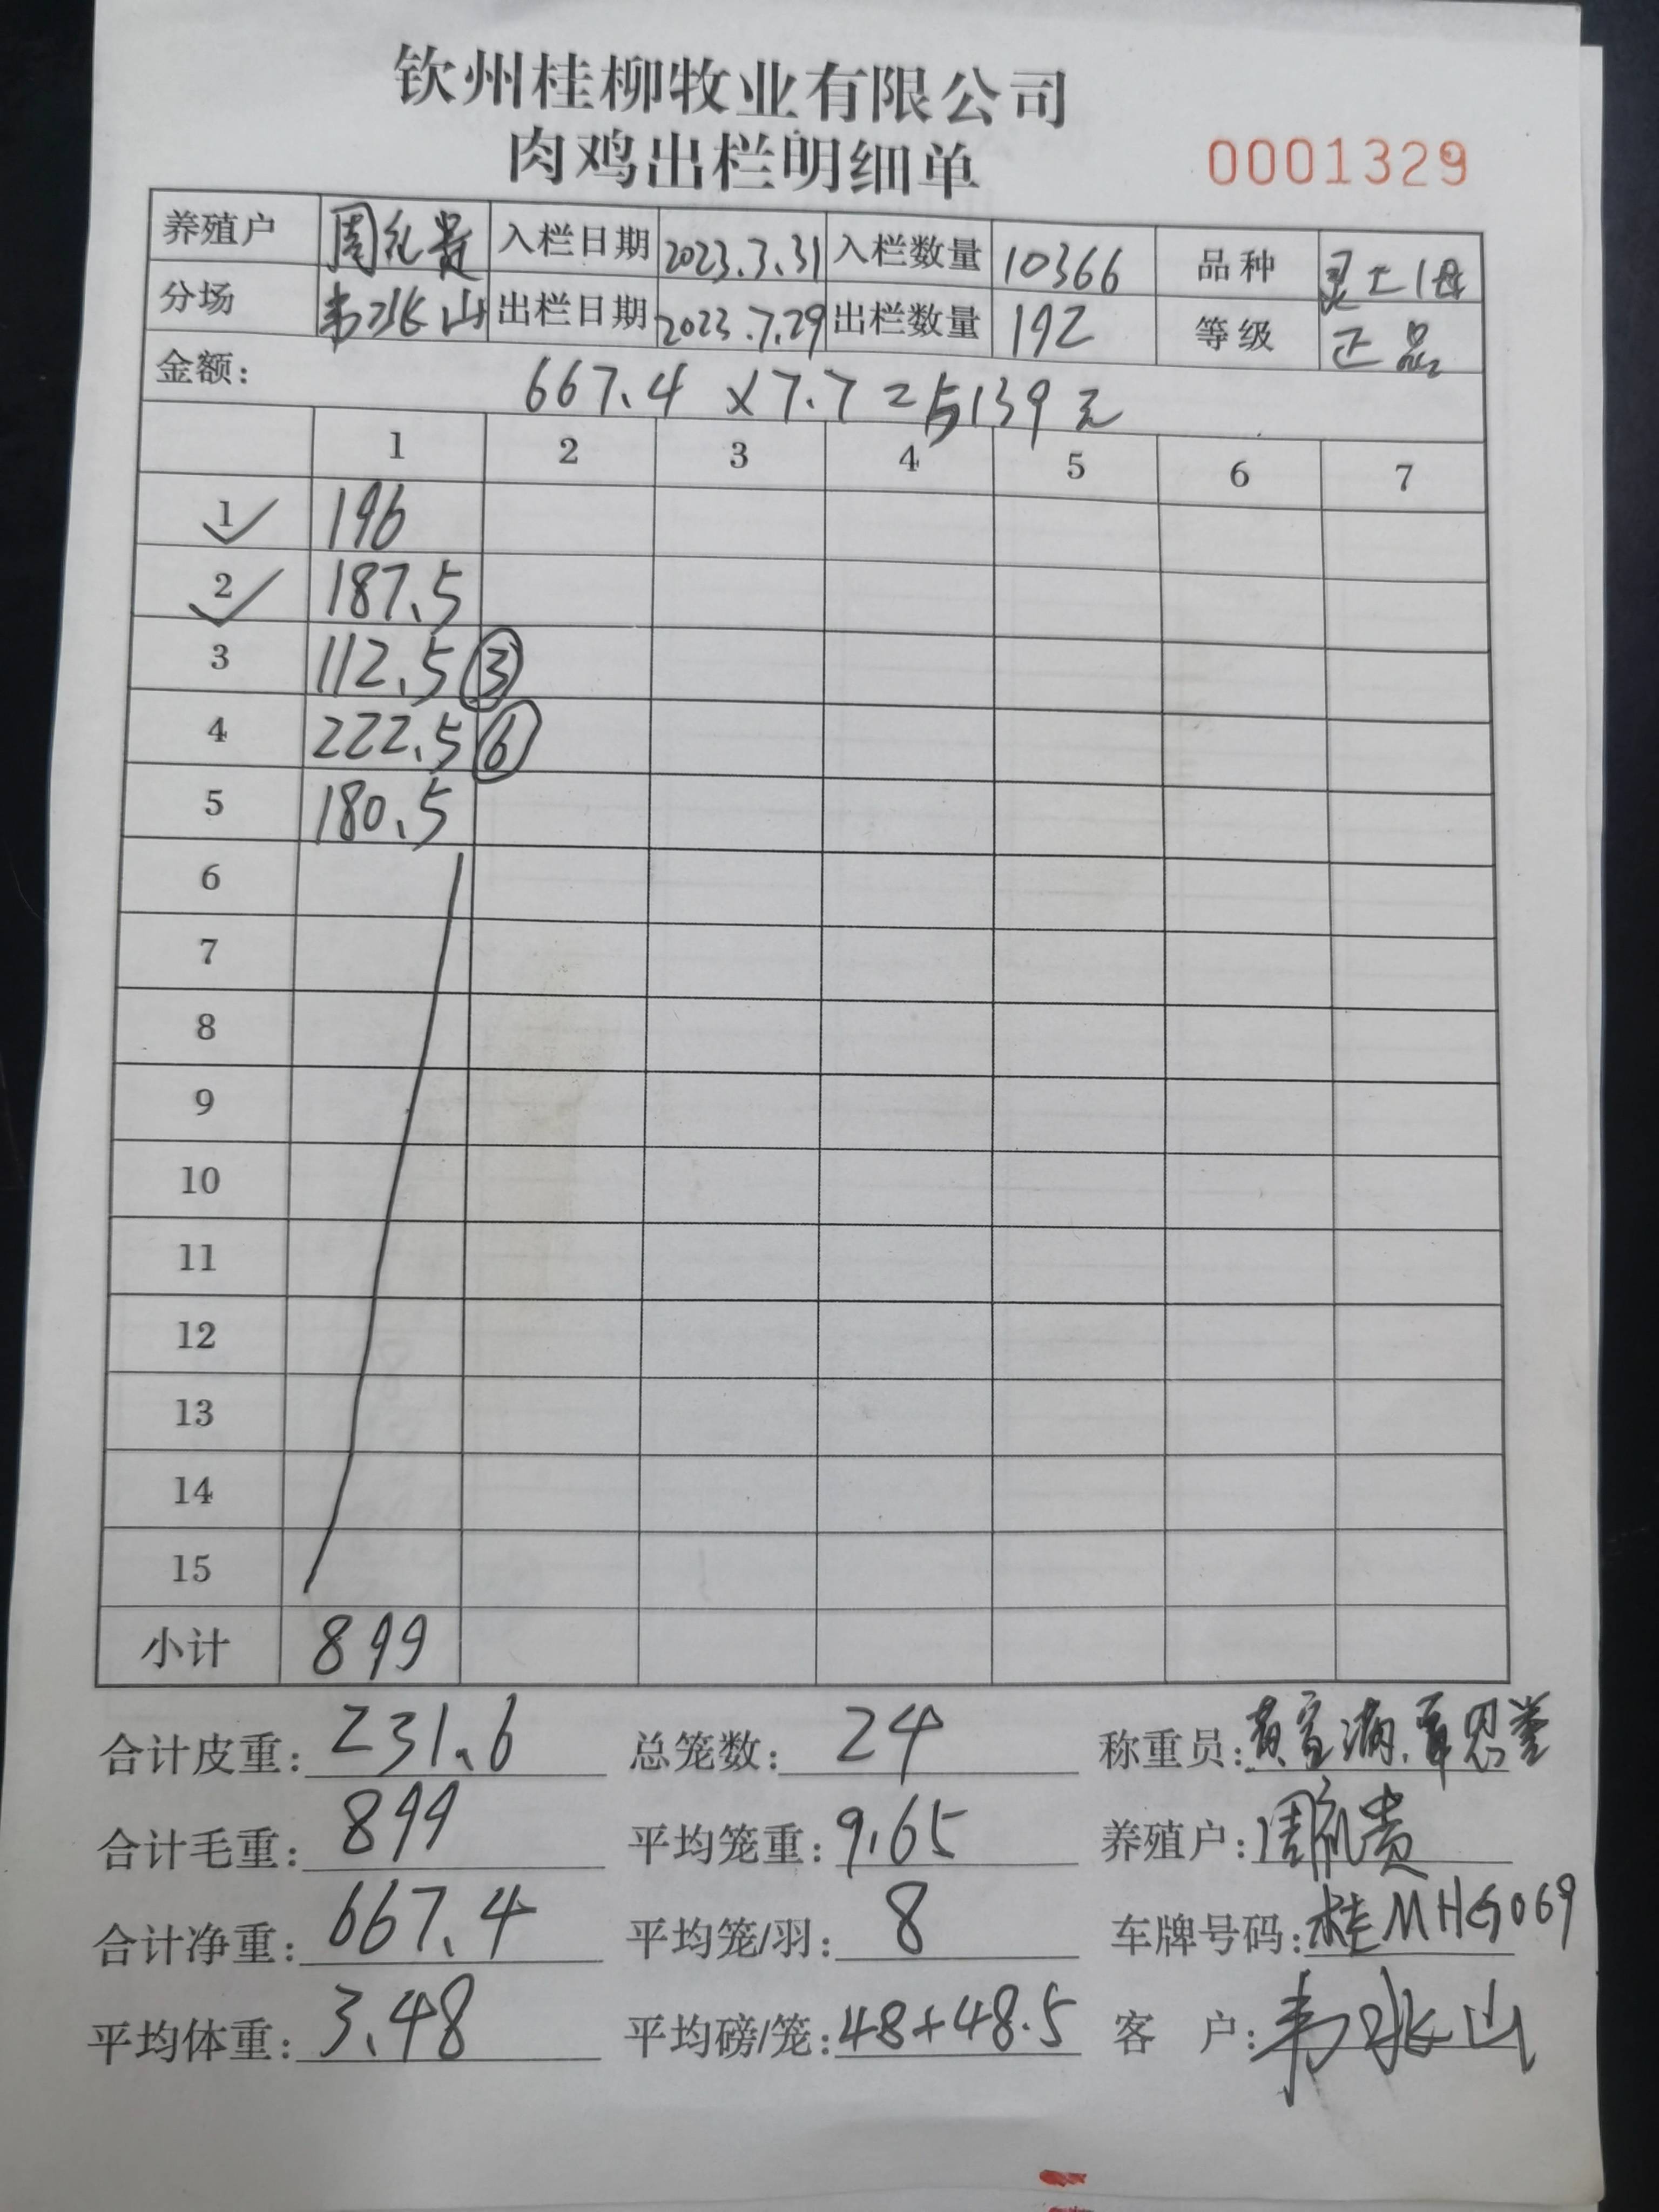 钦州桂柳牧业有限公司
肉鸡出栏明细单 0001329
养殖户 周礼贵 入栏日期 2023.3.31 入栏数量 10366 品种 灵土1母
分场 韦兆山 出栏日期 2023.7.29 出栏数量 192 等级 正品
金额: 667.4 x7.7=5139元
1 2 3 4 5 6 7
1 196
2 187.5
3 112.5 ③
4 222.5 ⑥
5 180.5
6
7
8
9
10
11
12
13
14
15
小计 899
合计皮重: 231.6 总笼数: 24 称重员:
合计毛重: 899 平均笼重: 9.65 养殖户: 周礼贵
合计净重: 667.4 平均笼/羽: 8 车牌号码: 桂MHG069
平均体重: 3.48 平均磅/笼: 48+48.5 客户: 韦兆山